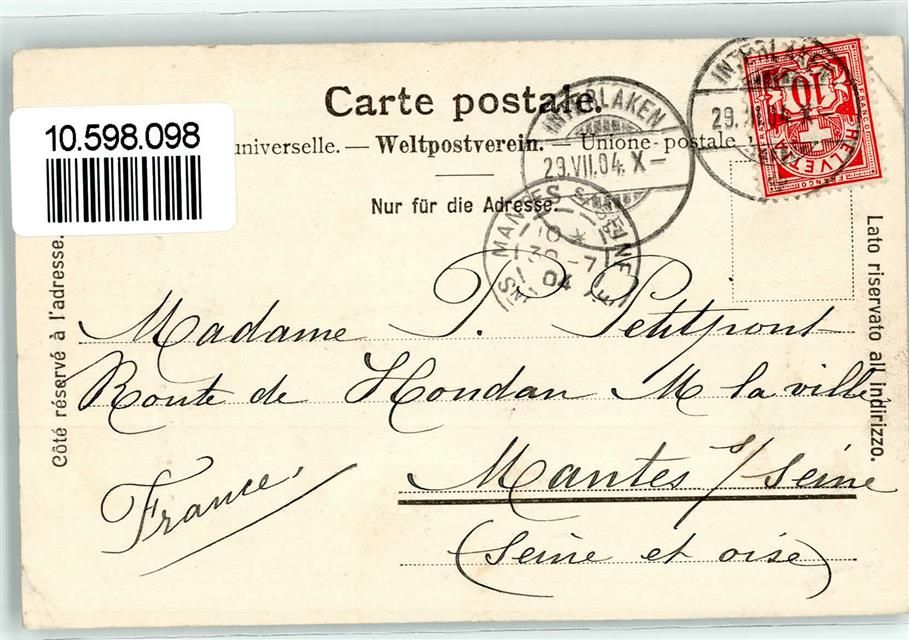 10.598.098
Carte postale.
universelle. — Weltpostverein. — Unione postale
Nur für die Adresse.
INTERLAKEN
29.VII.04. X—
INTERLAKEN
29. 04. X
10
HELVETIA
FRANCO
MANTES S/SEINE
30 -7
04
Côté réservé à l'adresse.
Lato riservato all'indirizzo.
Madame P. Petitpont
Route de Houdan M la ville
Mantes s/Seine
France.
(Seine et oise)